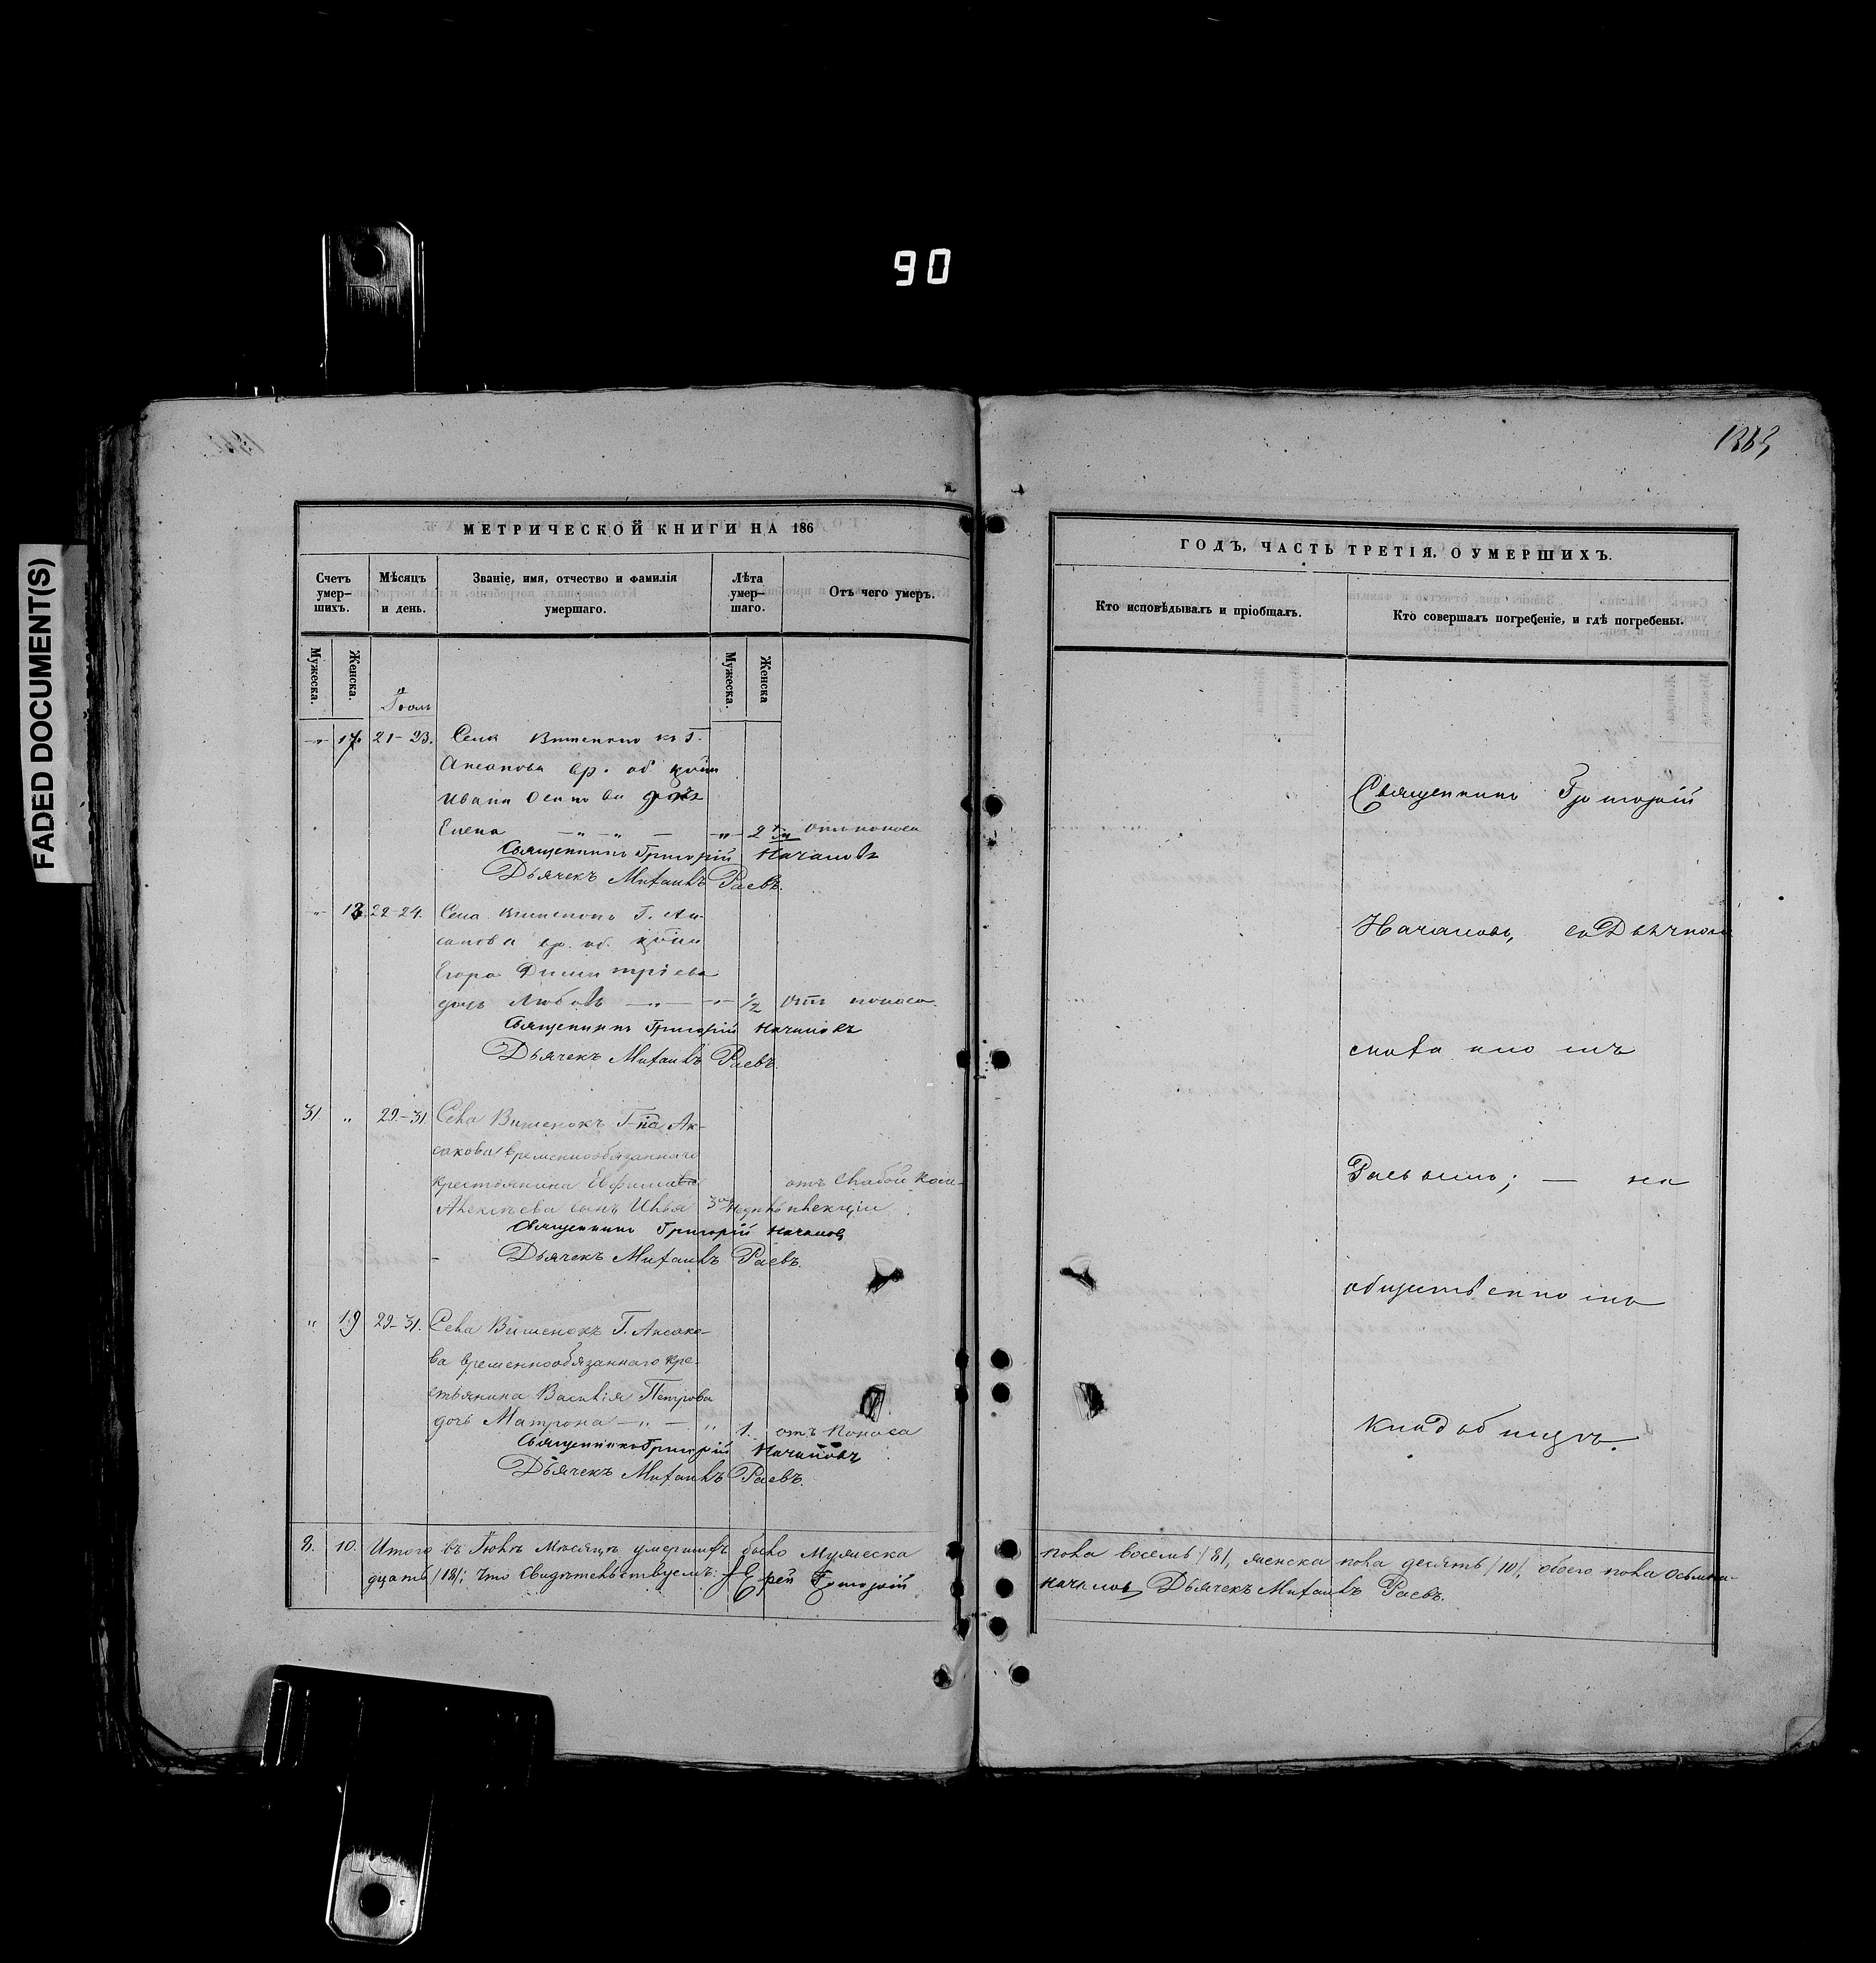 90
FADED DOCUMENT(S)
МЕТРИЧЕСКОЙ КНИГИ НА 186
Счетъ умер-шихъ.
Мѣсяцъ и день.
Званіе, имя, отчество и фамилія умершаго.
Лѣта умер-шаго.
Отъ чего умеръ.
Мужеска.
Женска.
Мужеска.
Женска
17. 21-23.
Аксакова вр. об
Ивана Осипова дочь
Елена — " — " — 2 отъ поноса
Священникъ Григорій Началовъ
Дьячекъ Михаилъ Раевъ.
" 18 22-24. Села Вишенокъ Г. Ак-
сакова вр. об.
Егора Димитріева
дочь Любовь — " — " — 1/2 отъ поноса.
Священникъ Григорій Началовъ
Дьячекъ Михаилъ Раевъ.
31 " 29-31. Села Вишенокъ Г-на Ак-
сакова временнообязаннаго
крестьянина отъ слабой ком-
Алексѣева сынъ Илья плекціи
Священникъ Григорій Началовъ
- Дьячекъ Михаилъ Раевъ.
" 19 29-31. Села Вишенокъ Г. Аксако-
ва временнообязаннаго кре-
стьянина Василія Петрова
дочь Матрона — " — " 1. отъ поноса
Священникъ Григорій Началовъ
Дьячекъ Михаилъ Раевъ.
8. 10. Итого въ Іюлѣ мѣсяцѣ умершихъ было мужеска
дцать /18/; что свидѣтельствуемъ: Іерей Григорій
1363
ГОДЪ, ЧАСТЬ ТРЕТІЯ, О УМЕРШИХЪ.
Кто исповѣдывалъ и пріобщалъ.
Кто совершалъ погребеніе, и гдѣ погребены.
Священникъ Григорій
Началовъ, съ Дьячкомъ
Раевымъ; — на
общественномъ
кладбищѣ.
пола восемь /8/, женска пола десять /10/, обоего пола осьмна-
Началовъ Дьячекъ Михаилъ Раевъ.